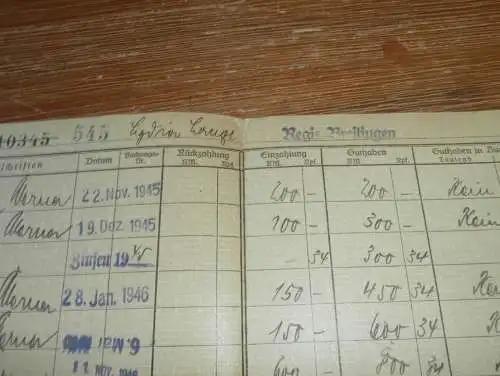 10345 545 Lydia Lange Regis-Breitingen
Datum Buchungs-Nr. Rückzahlung RM. Rpf. Einzahlung RM. Rpf. Guthaben RM. Rpf. Guthaben in
Werner 22. Nov. 1945 200 – 200 – Kein
Werner 19. Dez. 1945 100 – 300 – Kein
Zinsen 19 45 – 34 300 34
Werner 28. Jan. 1946 150 – 450 34 Kein
Werner 6. Mai 150 – 600 34 K
11. Nov. 1946 600 34